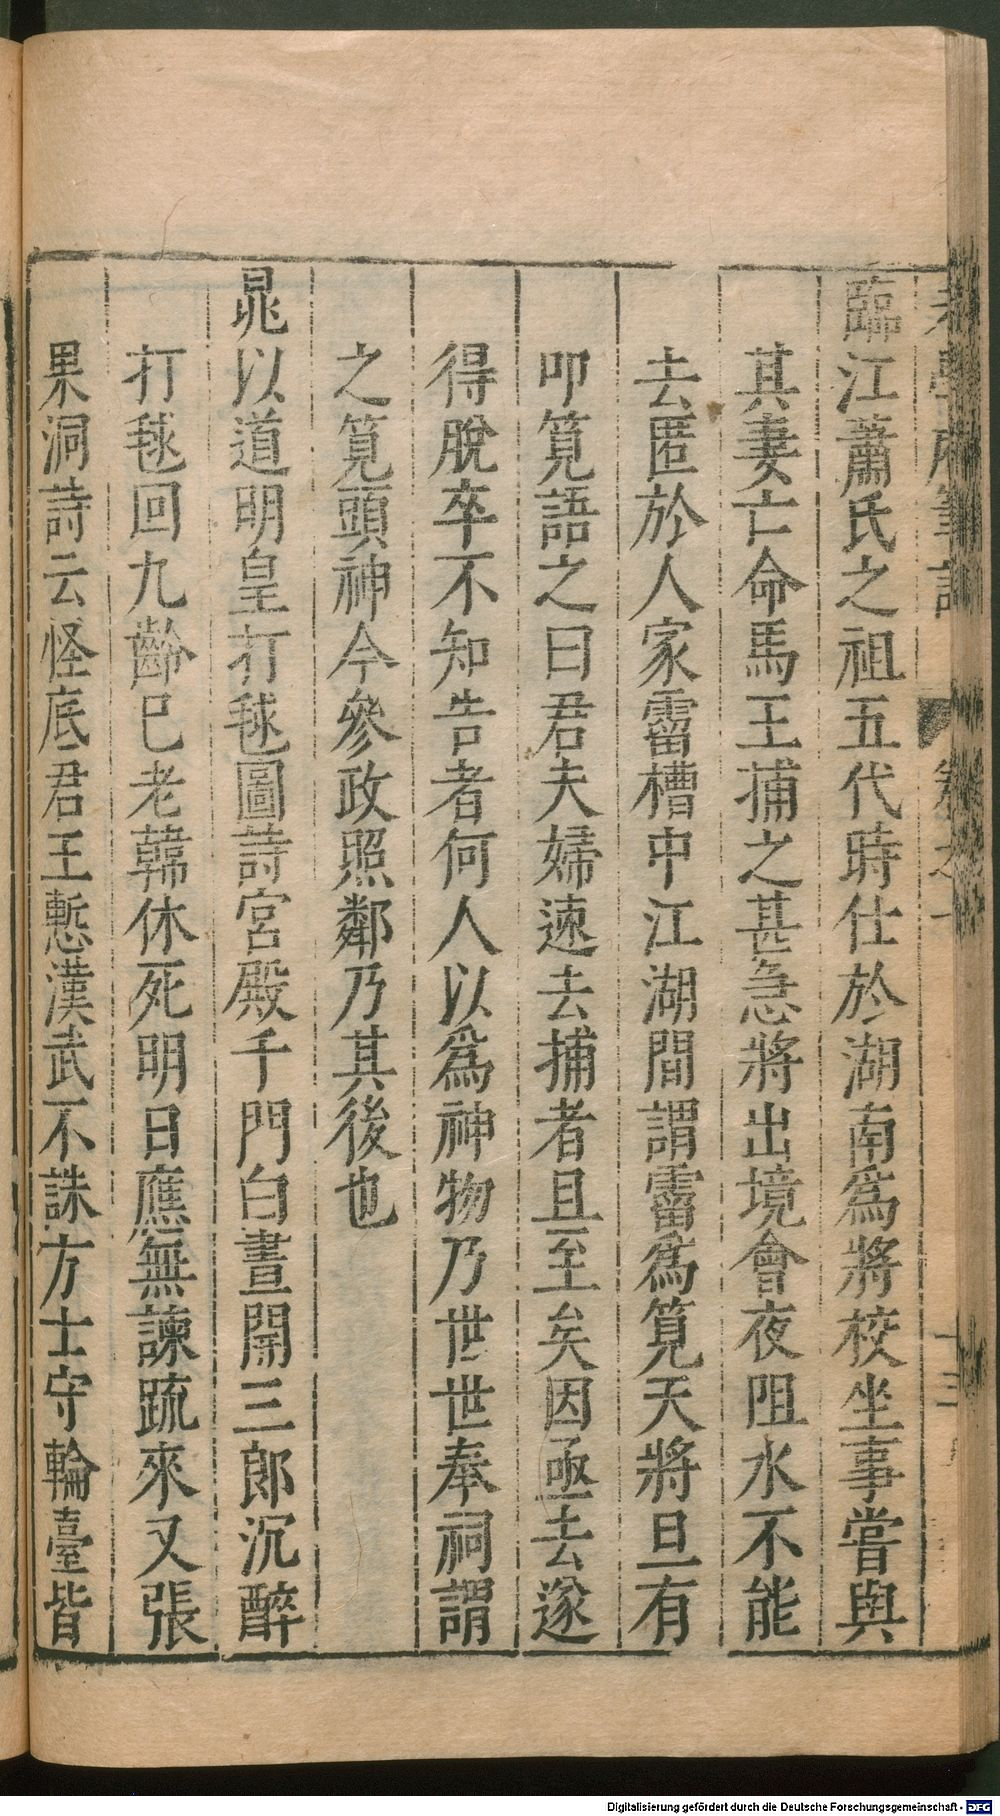 臨江蕭氏之祖五代時仕於湖南爲將校坐事嘗與
其妻亡命馬王捕之甚急將出境會夜阻水不能
去匿於人家霤槽中江湖間謂霤爲筧天將旦有
叩筧語之曰君夫婦速去捕者且至矣因亟去遂
得脫卒不知告者何人以爲神物乃世世奉祠謂
之筧頭神今參政照鄰乃其後也
晁以道明皇打毬圖詩宮殿千門白晝開三郎沉醉
打毬回九齡巳老韓休死明日應無諫疏來又張
果洞詩云怪底君王慙漢武不誅方士守輪臺皆
Digitalisierung gefördert durch die Deutsche Forschungsgemeinschaft - DFG